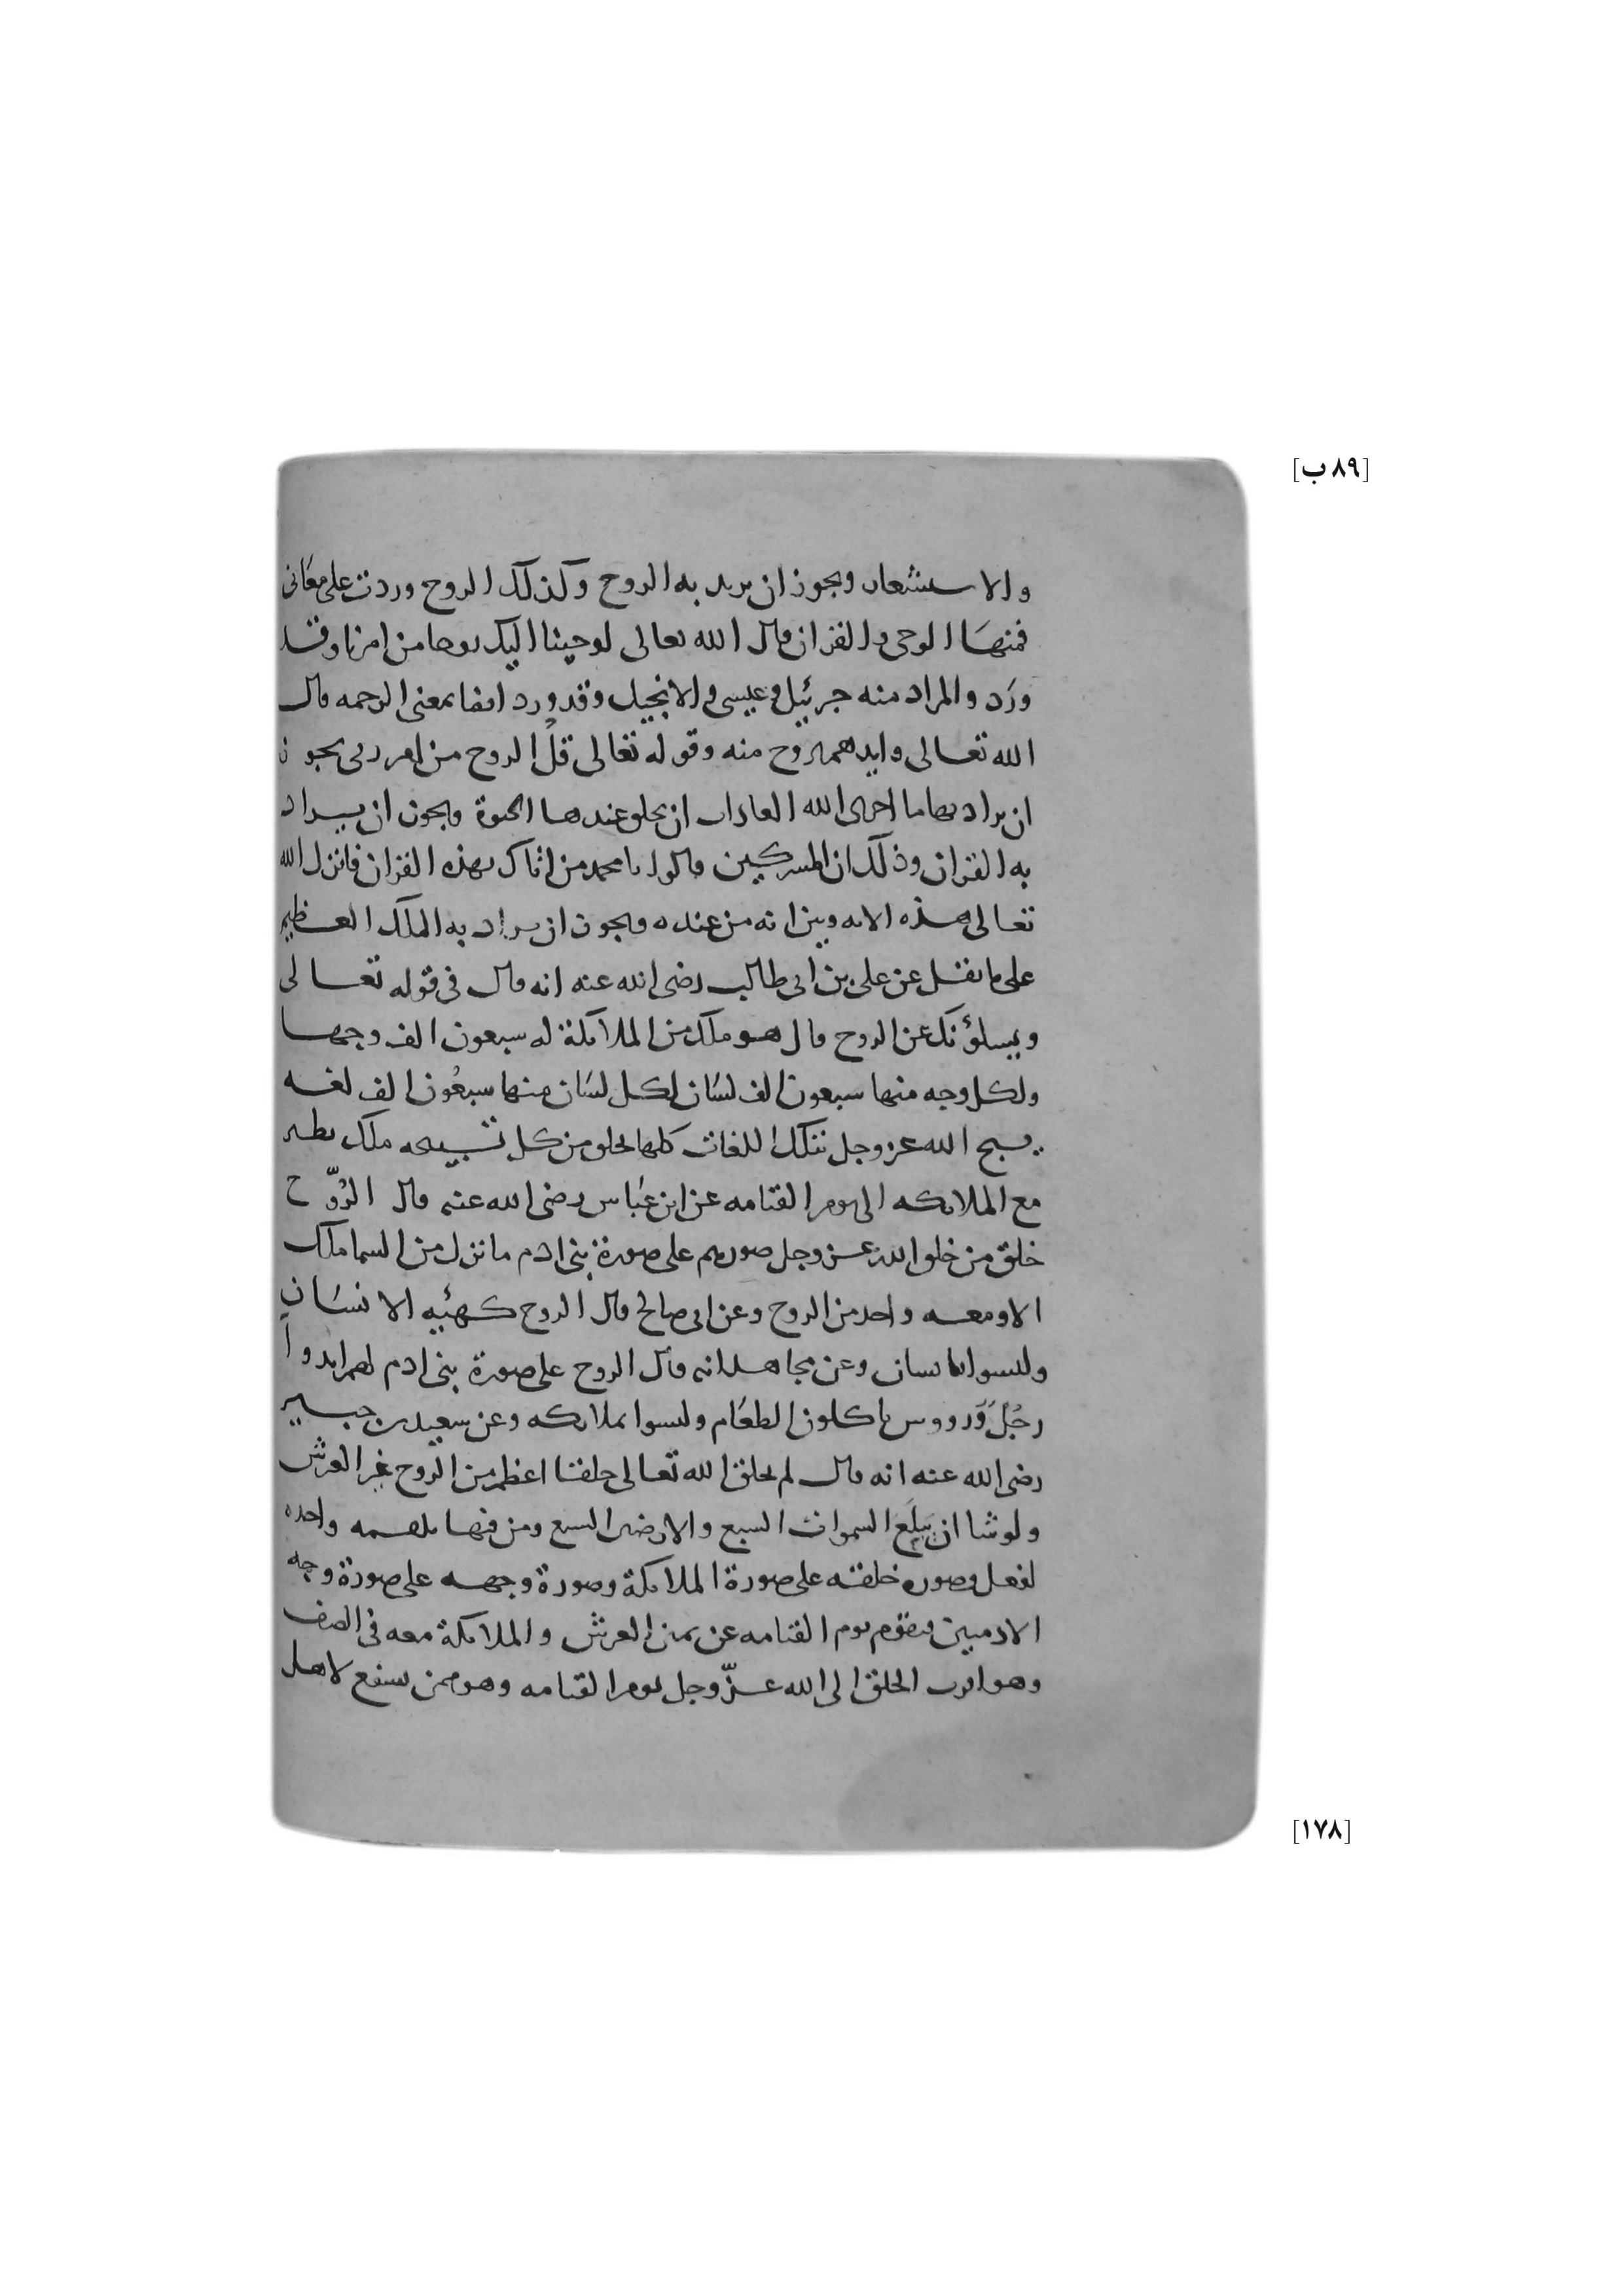 [٨٩ ب]
والاستشعار ويجوز ان يريد به الروح وكذلك الروح وردت على معانى
فمنها الوحى والقران قال الله تعالى اوحينا اليك روحا من امرنا وقد
ورد والمراد منه جبرئيل وعيسى والانجيل وقد ورد ايضا بمعنى الرحمه قال
الله تعالى وايدهم بروح منه وقوله تعالى قل الروح من امر ربى يجوز
ان يراد بها ما اجرى الله العادات ان يخلق عندها الحيوة ويجوز ان يراد
به القران وذلك ان المشركين قالوا يا محمد من اتاك بهذه القران فانزل الله
تعالى هذه الايه وبين انه من عنده ويجوز ان يراد به الملك العظيم
على ما نقل عن على بن ابى طالب رضى الله عنه انه قال فى قوله تعالى
ويسلؤنك عن الروح قال هو ملك من الملائكة له سبعون الف وجها
ولكل وجه منها سبعون الف لسان لكل لسان منها سبعون الف لغه
يسبح الله عز وجل بتلك اللغات كلها يخلق من كل تسبيحه ملك يطير
مع الملائكه الى يوم القيامه عن ابن عباس رضى الله عنه قال الروح
خلق من خلق الله عز وجل صورهم على صورة بنى ادم ما نزل من السما ملك
الا ومعه واحد من الروح وعن ابى صالح قال الروح كهئيه الانسان
وليسوا بانسان وعن مجاهد انه قال الروح على صورة بنى ادم لهم ايد وا
رجل ورووس ياكلون الطعام وليسوا بملائكه وعن سعيد بن جبير
رضى الله عنه انه قال لم يخلق الله تعالى خلقا اعظم من الروح غير العرش
ولو شا ان يبلع السموات السبع والارضين السبع ومن فيها بلقمه واحده
لفعل وصوره خلقته على صورة الملائكة وصورة وجهه على صورة وجه
الادميين فيقوم يوم القيامه عن يمين العرش والملائكة معه فى الصف
وهو اقرب الخلق الى الله عز وجل يوم القيامه وهو ممن يشفع لاهل
[١٧٨]